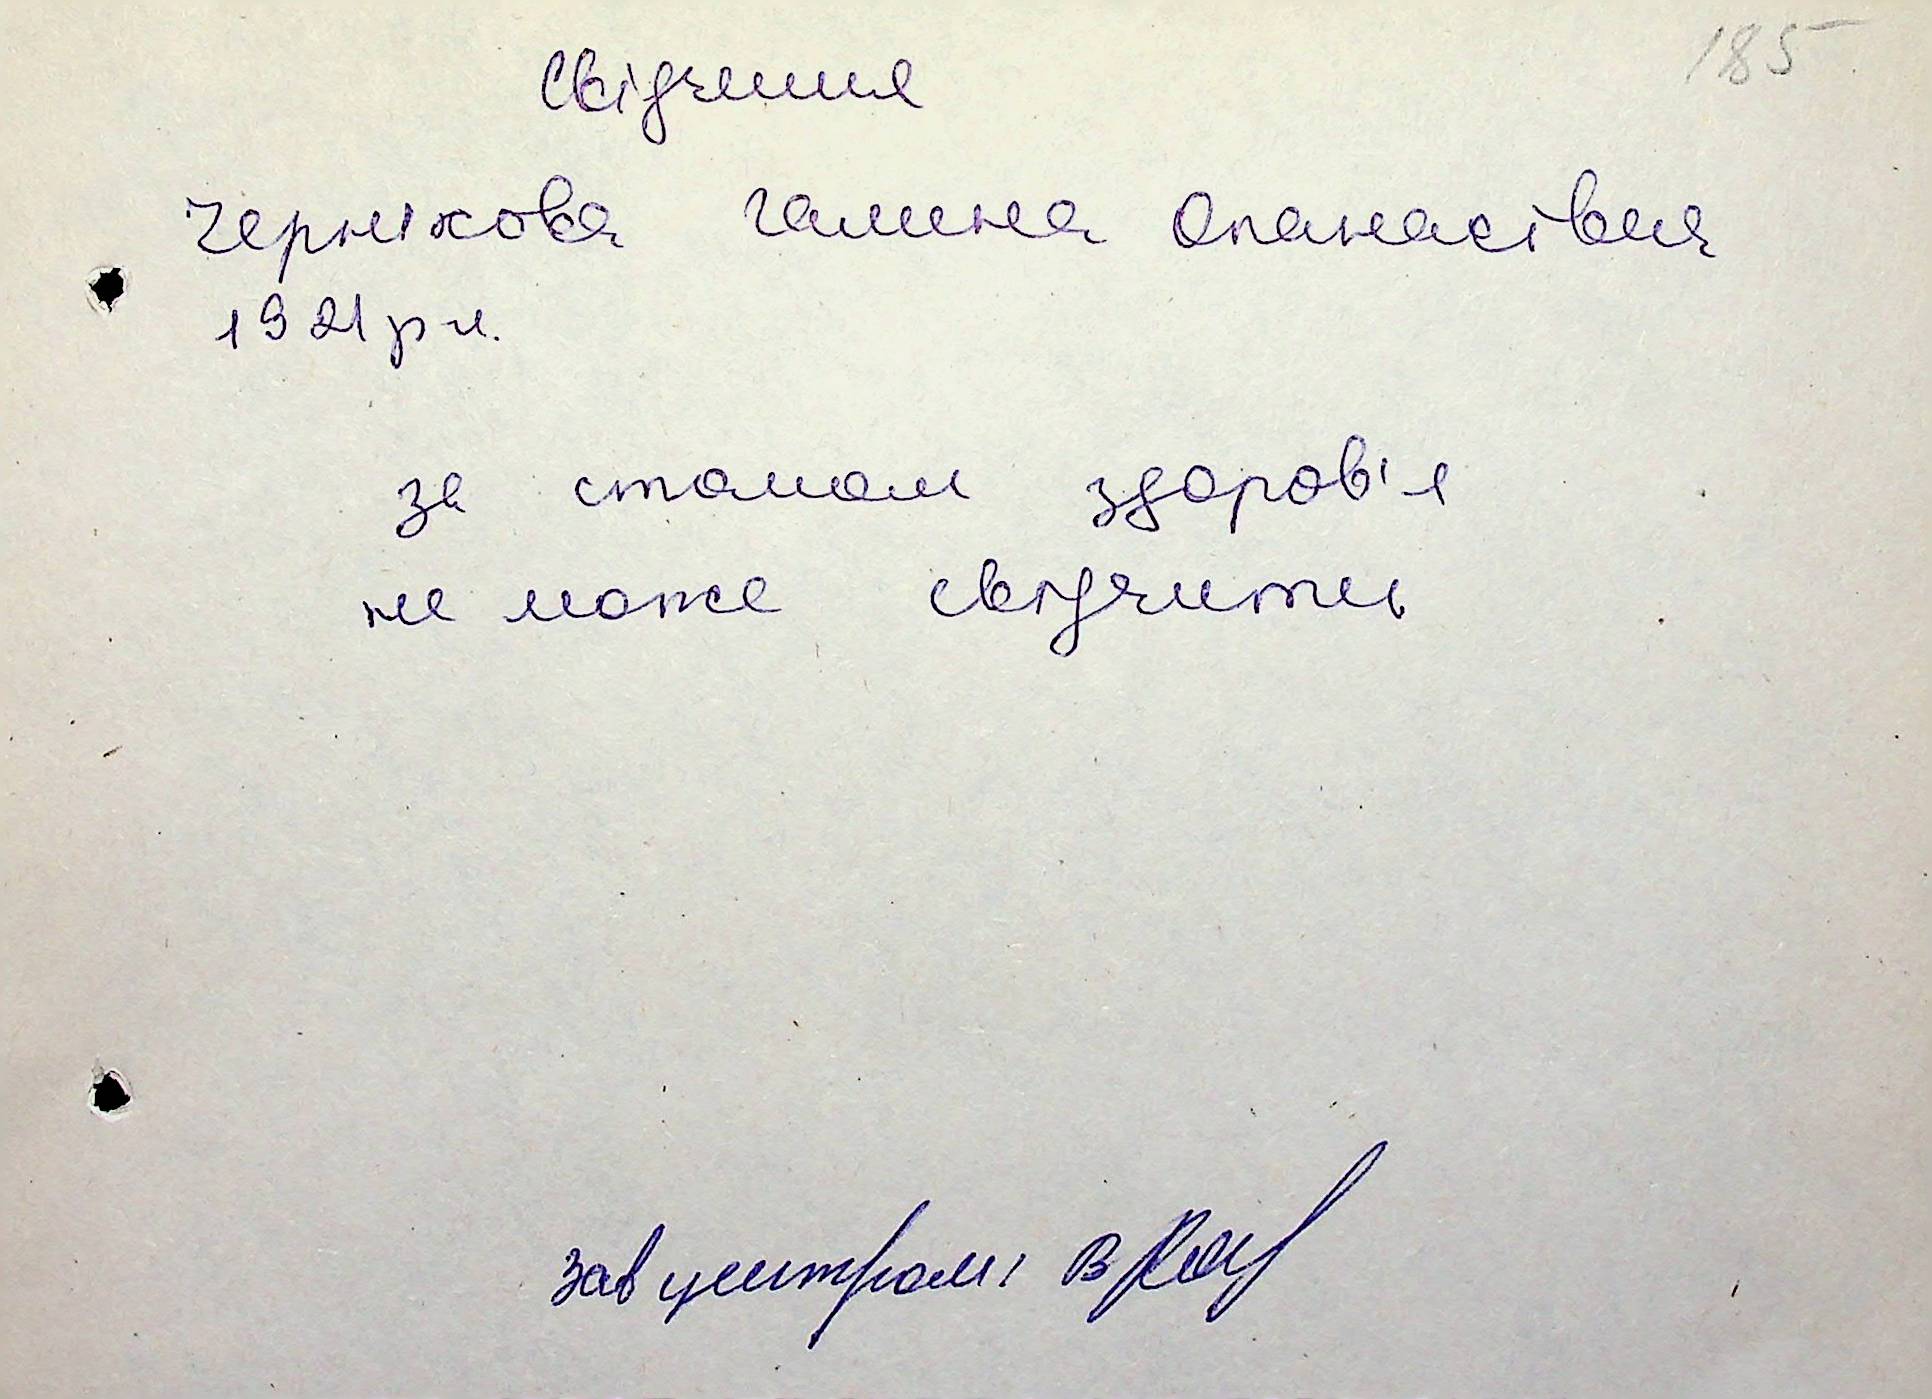 185
Свідчення
Чернікова Галина Опанасівна
1921 р н.
за станом здоров'я
не може свідчити
Зав центром: В